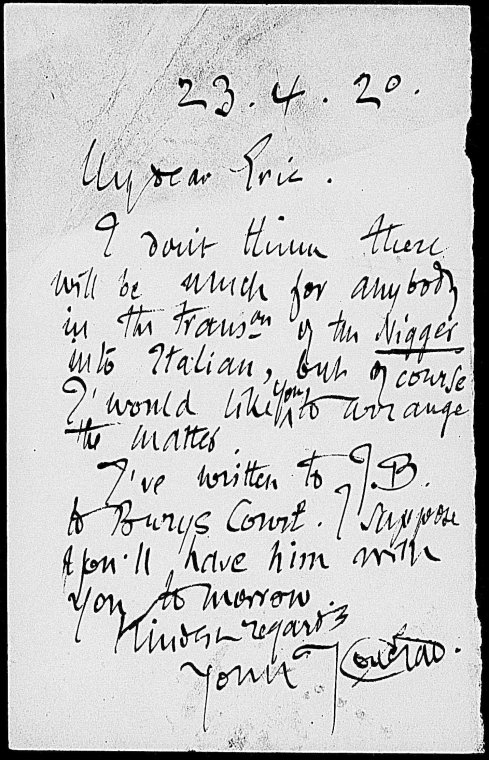 23.4.20.
My dear Eric.
I don't think there
will be much for anybody
in the trans^on of the Nigger
into Italian, but of course
I would like you to arrange
the matter.
I've written to J.B.
to Burys Court. I suppose
you'll have him with
you to morrow.
Kindest regards
Yours J Conrad.